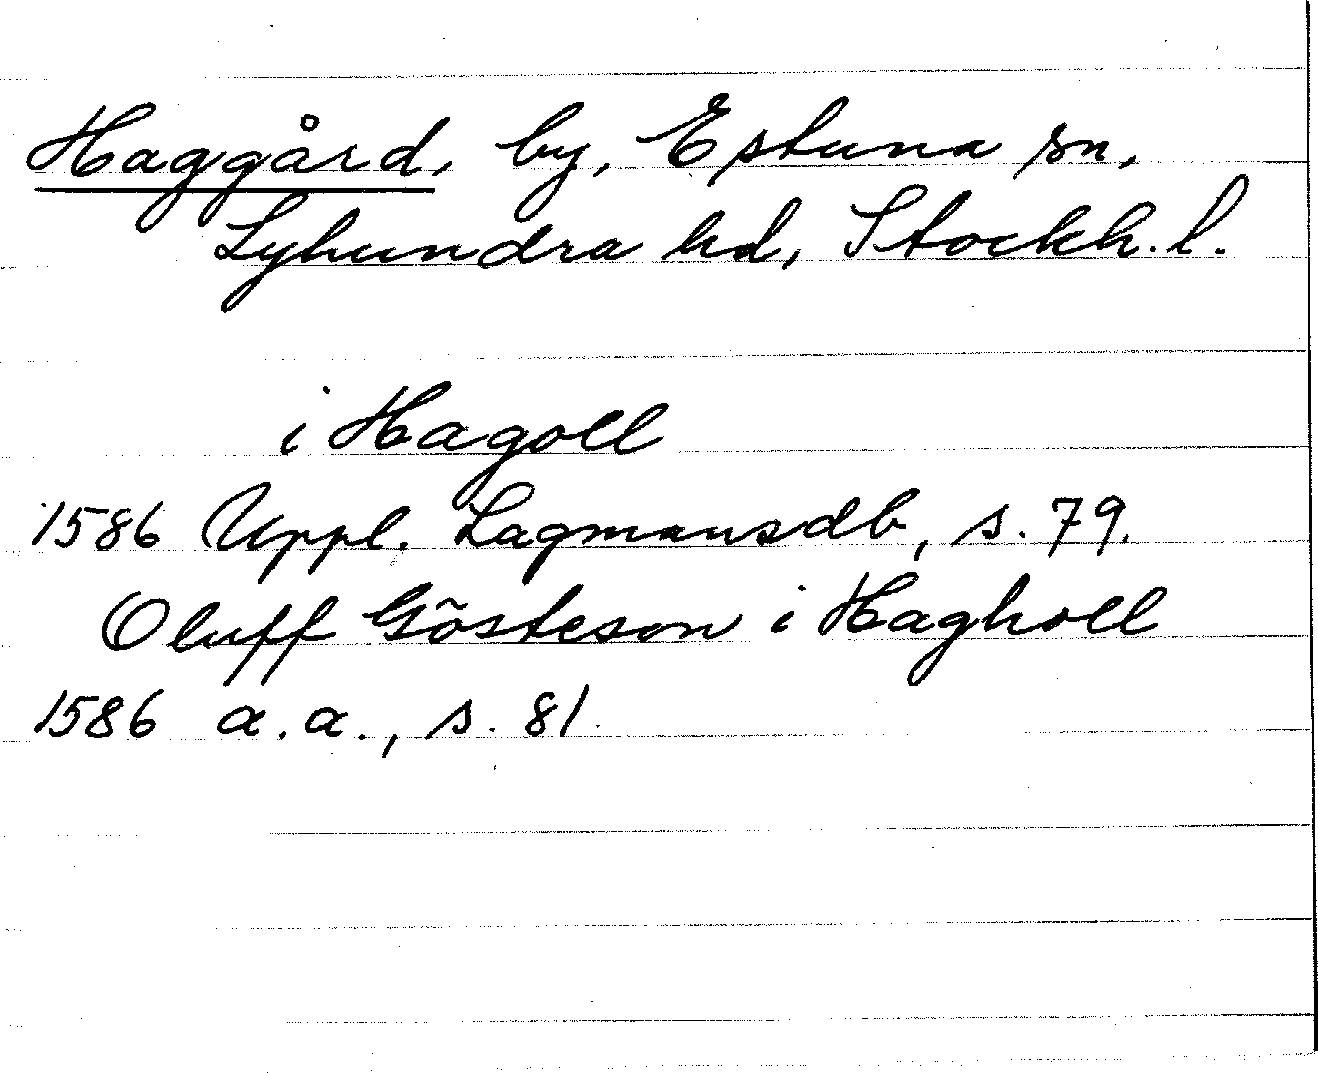 Haggård, by, Estuna sn,
Lyhundra hd, Stockh. l.
i Hagoll
1586 Uppl. Lagmansdb, s. 79.
Oluff Gösteson i Hagholl
1586 a.a., s. 81.